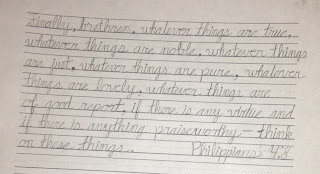 Finally, brethren, whatever things are true,
whatever things are noble, whatever things
are just, whatever things are pure, whatever
things are lovely, whatever things are
of good report, if there is any virtue and
if there is anything praiseworthy— think
on these things. Philippians 4:8